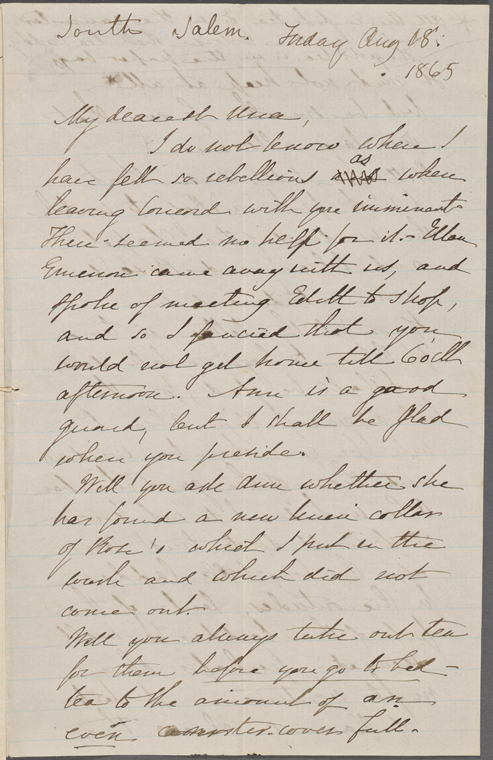 South Salem. Friday Aug 18th
1865
My dearest Una,
I do not know when I
have felt so rebellious as when
leaving Concord with you imminent.
There seemed no help for it. Ellen
Emerson came away with us, and
spoke of meeting Edith to shop,
and so I fancied that you
would not get home till 6 o'clk
afternoon. Ann is a good
guard, but I shall be glad
when you preside.
Will you ask Ann whether she
has found a new linen collar
of Rose's which I put in the
wash and which did not
come out.
Will you always take out tea
for them before you go to bed -
tea to the amount of an
even cannister-cover full.